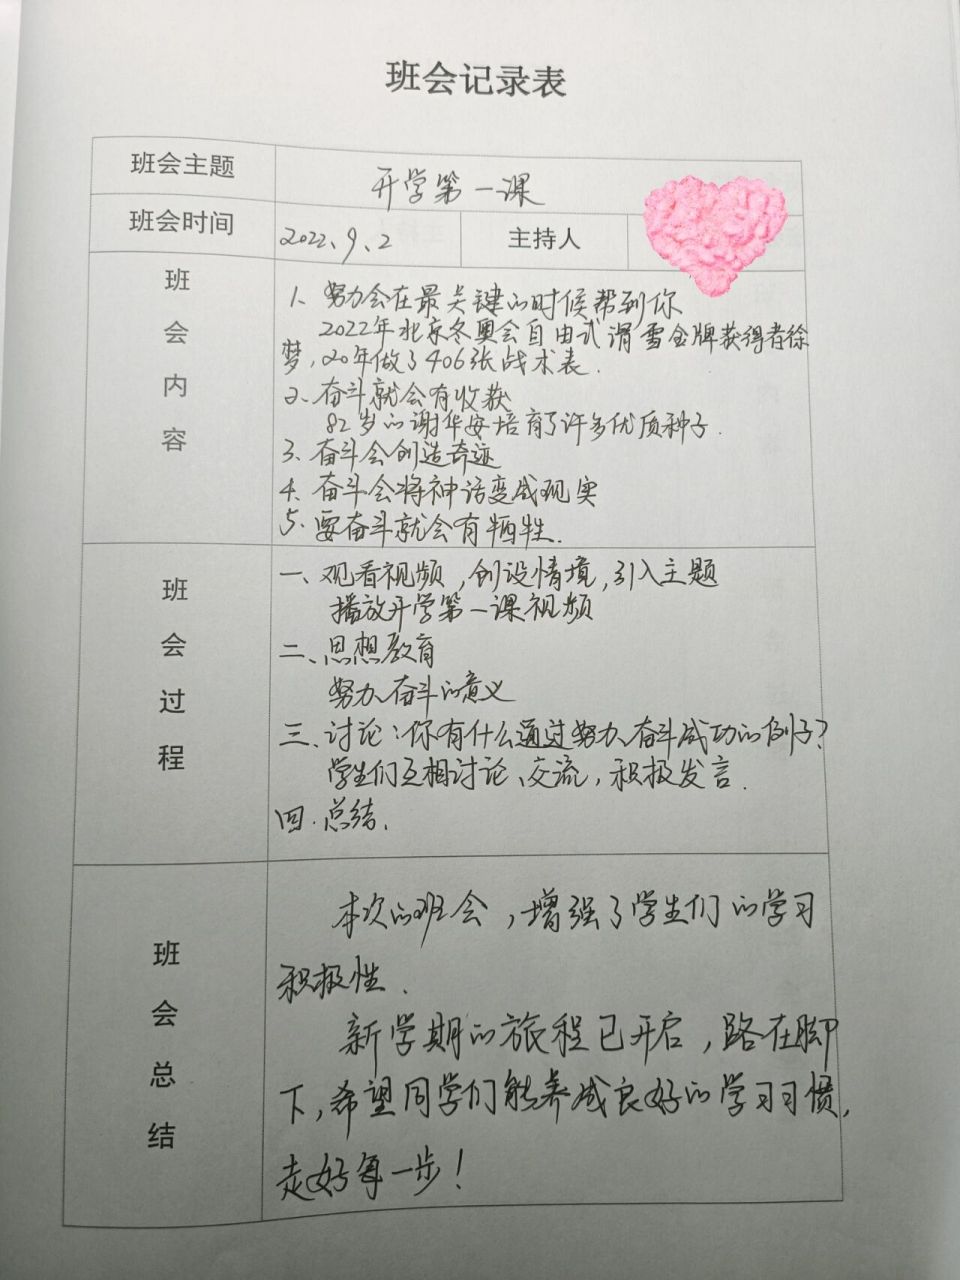 班会记录表
班会主题
开学第一课
班会时间
2022、9、2
主持人
班会内容
1、努力会在最关键的时候帮到你
2022年北京冬奥会自由式滑雪金牌获得者徐
梦,20年做了406张战术表.
2、奋斗就会有收获
82岁的谢华安培育了许多优质种子.
3、奋斗会创造奇迹
4、奋斗会将神话变成现实
5、要奋斗就会有牺牲.
班会过程
一、观看视频,创设情境,引入主题
播放开学第一课视频
二、思想教育
努力、奋斗的意义
三、讨论:你有什么通过努力、奋斗成功的例子?
学生们互相讨论、交流,积极发言.
四.总结.
班会总结
本次的班会,增强了学生们的学习
积极性.
新学期的旅程已开启,路在脚
下,希望同学们能养成良好的学习习惯,
走好每一步!